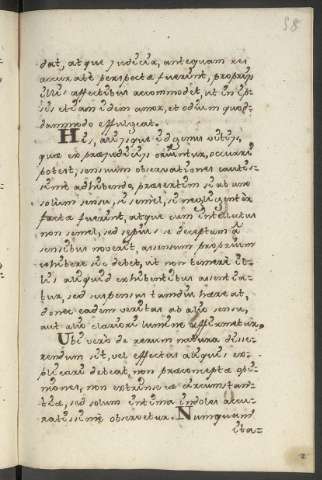 58
dat, atque judicia, antequam rei
accurate perspectæ fuerint, propriis
illis affectibus accommodet, ut in ip-
sis etiam idem amor, et odium quod-
dammodo effulgeat.
His, aliisque id genus vitiis,
quæ ex præjudiciis oriuntur, occurri
potest, sensuum observationes cautis-
sime adhibendo, præsertim si ab uno
solum sensu, si semel, si negligenter
factæ fuerint, atque cum intellectus
non semel, sed sæpius se deceptum a
sensibus noverit, assensum proprium
cohibere sic debet, ut non temere il-
lis aliquid exhibentibus assentia-
tur, sed suspensus tamdiu hæreat,
donec eadem veritas ab alio sensu,
aut alio clariori lumine affirmetur.
Ubi vero de rerum natura disse-
rendum sit, vel effectus aliquis ex-
plicari debeat, non præconceptæ opi-
niones, non extrinsecæ circumstan-
tiæ, sed solum intima indoles accu-
ratissime observetur. Numquam
ita-